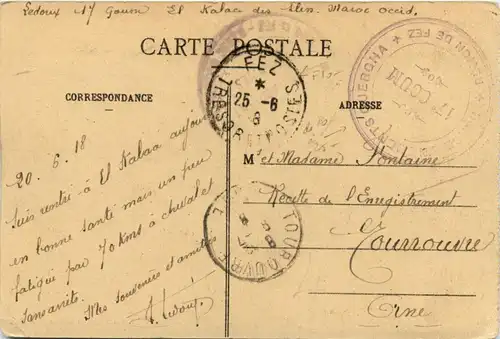 Ledoux 17 Goum El Kalaa des Slès. Maroc Occid.
CARTE POSTALE
CORRESPONDANCE
ADRESSE
FEZ
*
25 - 6
8
TRESOR ET POSTES
RÉGION DE FEZ
17e GOUM
OUERGHA
20.6.18
Suis rentré à El Kalaa aujourd
en bonne santé mais un peu
fatigué par 70 kms à cheval et
sans arrêt.
Mes souvenirs et amitiés
A. Ledoux
M. et Madame Fontaine
Recette de l'Enregistrement
Tourouvre
Orne
TOUROUVRE